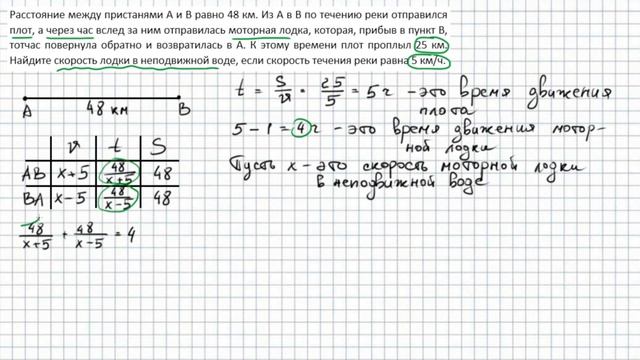 Расстояние между пристанями А и В равно 48 км. Из А в В по течению реки отправился
плот, а через час вслед за ним отправилась моторная лодка, которая, прибыв в пункт В,
тотчас повернула обратно и возвратилась в А. К этому времени плот проплыл 25 км.
Найдите скорость лодки в неподвижной воде, если скорость течения реки равна 5 км/ч.
A 48 км B
v t S
AB x+5 48/(x+5) 48
BA x-5 48/(x-5) 48
48/(x+5) + 48/(x-5) = 4
t = S/v = 25/5 = 5 ч - это время движения
плота
5-1 = 4 ч - это время движения мотор-
ной лодки
Пусть x - это скорость моторной лодки
в неподвижной воде